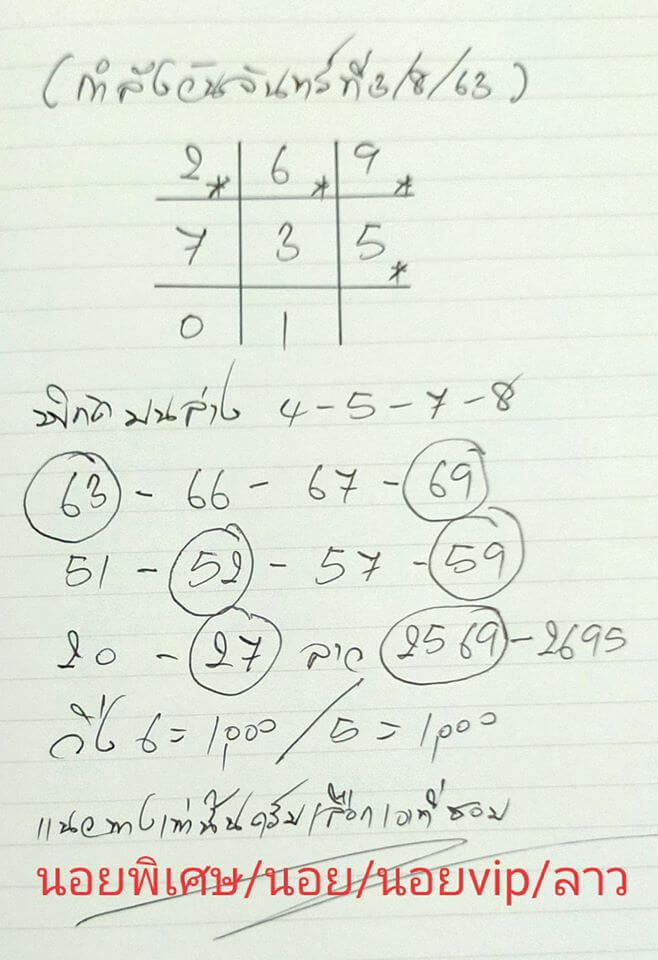 (กำลังวันจันทร์ที่3/8/63)
2* 6* 9*
7 3 5*
0 1
พิกัด บนล่าง 4-5-7-8
63 - 66 - 67 - 69
51 - 52 - 57 - 59
20 - 27 ลาว 2569 - 2695
วิ่ง 6 = 1,000 / 5 = 1,000
แนวทางเท่านั้นครับเลือกเอาที่ชอบ
นอยพิเศษ/นอย/นอยvip/ลาว